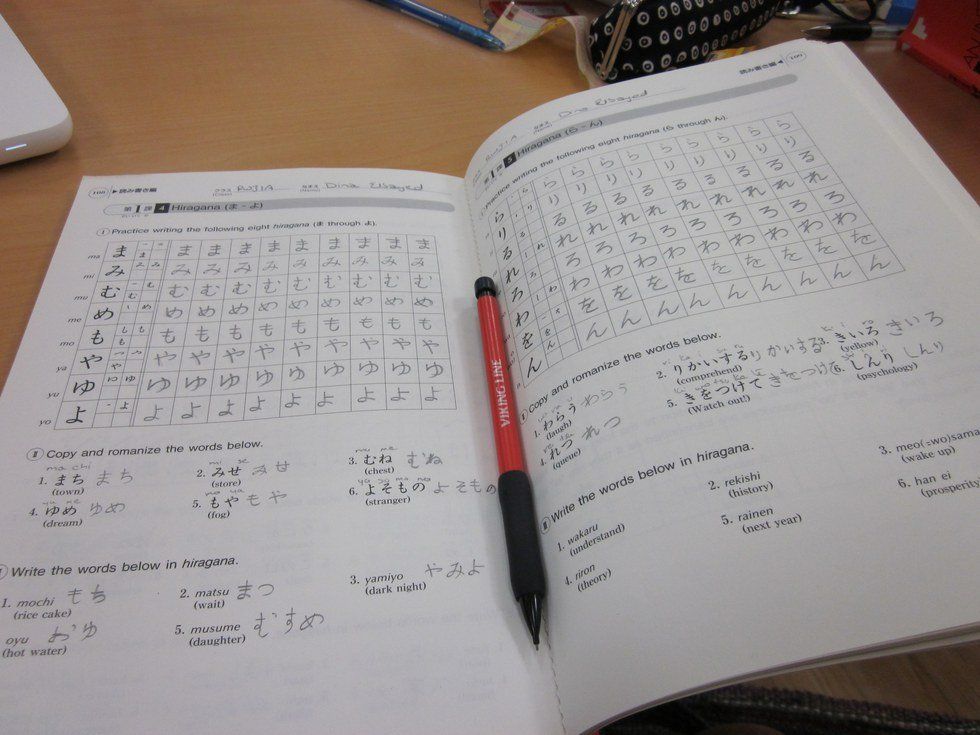 108 ▶読み書き編
クラス (Class) RUJIA なまえ (Name) Dina Elsayed
第1課 4 Hiragana (ま - よ)
I Practice writing the following eight hiragana (ま through よ).
ma ま ま ま ま ま ま ま ま ま ま
mi み み み み み み み み み
mu む む む む む む む む む
me め め め め め め め め め
mo も も も も も も も も も
ya や や や や や や や や や
yu ゆ ゆ ゆ ゆ ゆ ゆ ゆ ゆ ゆ
yo よ よ よ よ よ よ よ よ よ
II Copy and romanize the words below.
ma chi mi se mu ne
1. まち まち 2. みせ みせ 3. むね むね
(town) (store) (chest)
yu me mo ya yo so mo no
4. ゆめ ゆめ 5. もや もや 6. よそもの よそもの
(dream) (fog) (stranger)
Write the words below in hiragana.
1. mochi もち 2. matsu まつ 3. yamiyo やみよ
(rice cake) (wait) (dark night)
oyu おゆ 5. musume むすめ
(hot water) (daughter)
読み書き編◀ 109
RUJIA なまえ (Name) Dina Elsayed
第1課 5 Hiragana (ら - ん)
I Practice writing the following eight hiragana (ら through ん).
ら ら ら ら ら ら ら ら
り り り り り り り り
る る る る る る る る
れ れ れ れ れ れ れ れ
ろ ろ ろ ろ ろ ろ ろ ろ
わ わ わ わ わ わ わ わ
を を を を を を を を
ん ん ん ん ん ん ん ん
II Copy and romanize the words below.
1. わらう わらう 2. りかいする りかいする 3. きいろ きいろ
(laugh) (comprehend) (yellow)
4. れつ れつ 5. きをつけて きをつけて 6. しんり しんり
(queue) (Watch out!) (psychology)
III Write the words below in hiragana.
1. wakaru 2. rekishi 3. meo(=wo)sama
(understand) (history) (wake up)
4. riron 5. rainen 6. han ei
(theory) (next year) (prosperity
VIKING LINE